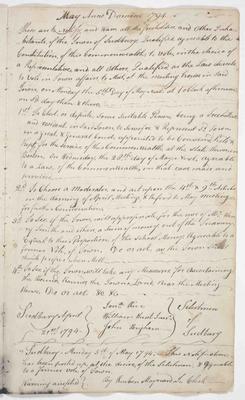 May Anno Domini 1794.
These are to notify and warn all the freeholders and other Inha-
bitants of the Town of Sudbury Qualified agreeable to the
Constitution of this Commonwealth, to vote in the choice of
a Representative, and all others Qualified as the Law directs
to Vote in Town affairs to meet at the meeting house in said
Town, on Monday the 5th Day of May next at 1 o'clock afternoon
on sd day then & there
1st To Elect & depute some suitable Person, being a Freeholder
and Resident in said Town, to serve for & Represent sd Town
in a great & General Court, appointed to be convened, held &
kept for the service of the Commonwealth at the State House in
Boston, on Wednesday the 28th Day of May next, agreeable
to a Law of the Commonwealth, in that case made and
provided.
2d To choose a Moderator, and act upon the
in the warning of April Meeting & refered to May meeting
for further consideration.
3d To see if the Town will appropriate for the use of
Smith and others a sum of money out of the Treasury
Equal to their Proportion of the School Money agreeable to a
former Vote of Town. Do or act as the Town
think proper when Met.
4th To see if the Town will take any Measures for ascertaining
the bounds round the Town's Land near the Meeting
House Do or act &c &c
Sudbury April
21st 1794
Jonth Rice
William Hunt
John Brigham
Selectmen
of
Sudbury
Sudbury Monday 5th of May 1794. This Notification
has been posted up at the doors of the Selectmen & agreeable
to a former vote of Town
Warning accepted
By Reuben Maynard Ju. Clerk